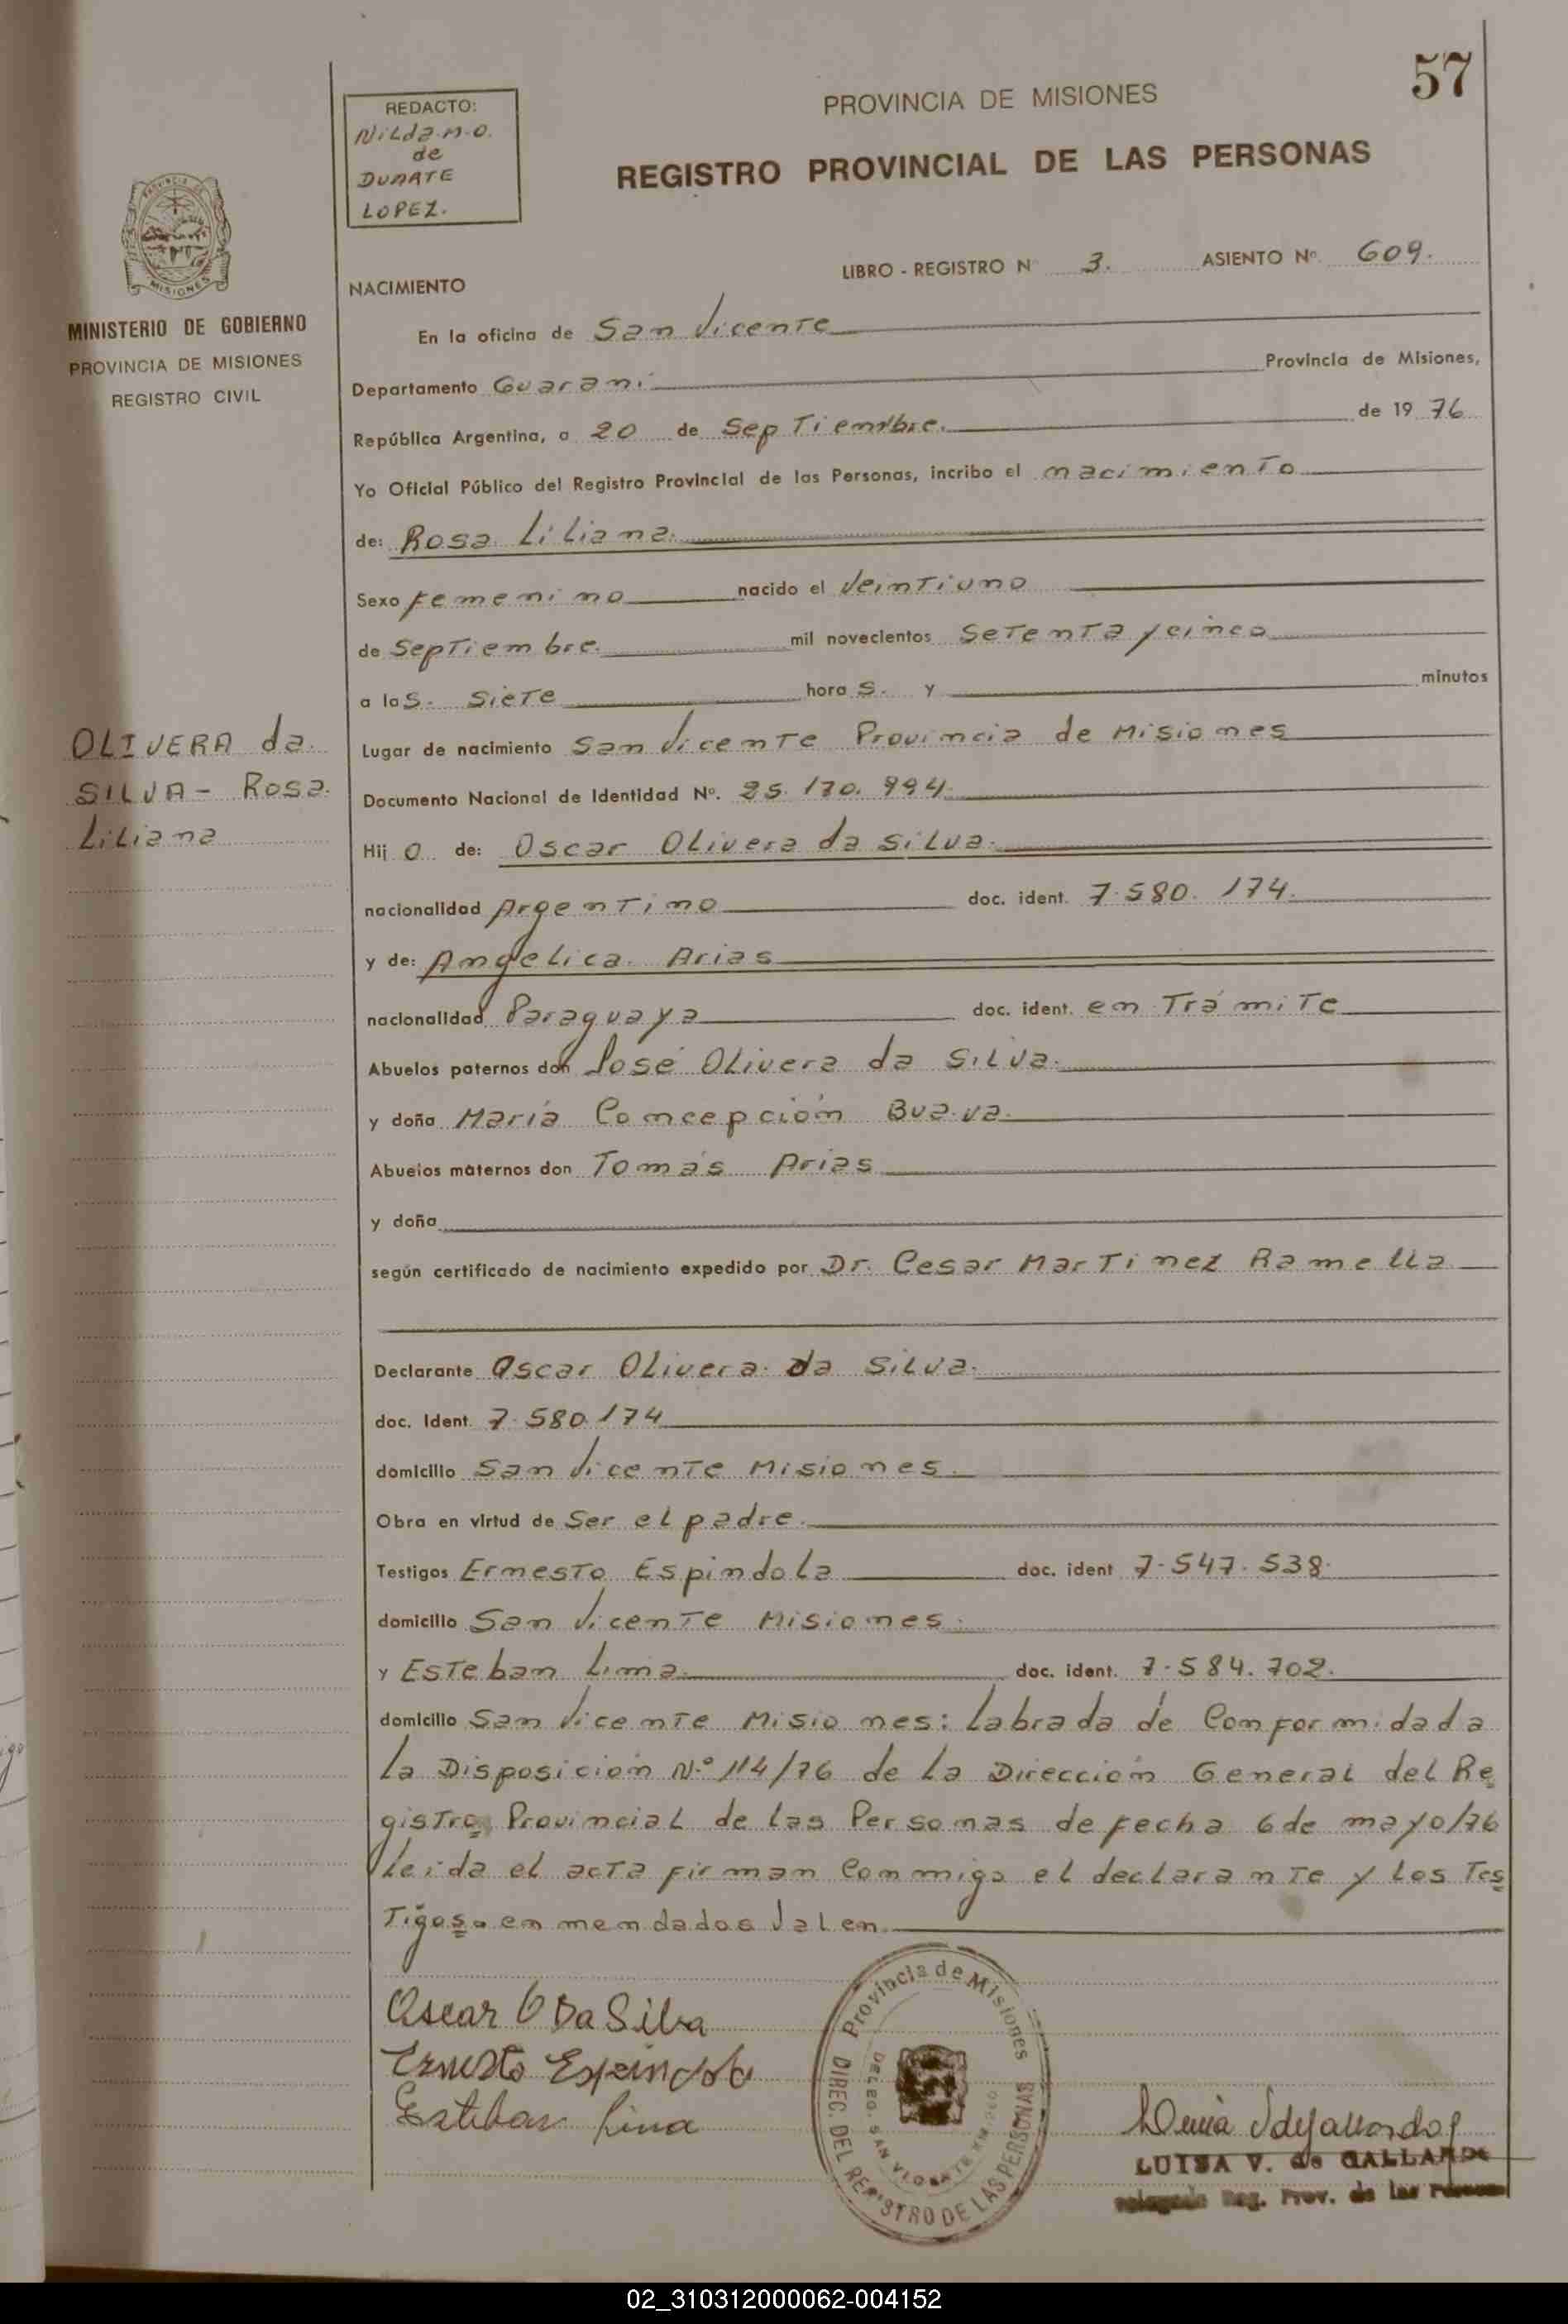 57
REDACTO:
Nilda.M.O.
de
DUARTE
LOPEZ.
PROVINCIA DE MISIONES
REGISTRO PROVINCIAL DE LAS PERSONAS
LIBRO - REGISTRO N° 3. ASIENTO N° 609.
NACIMIENTO
PROVINCIA DE
MISIONES
MINISTERIO DE GOBIERNO
PROVINCIA DE MISIONES
REGISTRO CIVIL
En la oficina de San Vicente
Departamento Guarani Provincia de Misiones,
República Argentina, a 20 de Septiembre. de 19 76
Yo Oficial Público del Registro Provincial de las Personas, incribo el nacimiento
de: Rosa Liliana.
Sexo femenino nacido el veintiuno
de Septiembre. mil novecientos setenta y cinco
a las. siete horas. y minutos
OLIVERA da
SILVA - Rosa
Liliana
Lugar de nacimiento San Vicente Provincia de Misiones
Documento Nacional de Identidad Nº. 25.170.994
Hijo de: Oscar Olivera da Silva.
nacionalidad Argentino doc. ident. 7.580.174.
y de: Angelica Arias
nacionalidad Paraguaya doc. ident. en Trámite
Abuelos paternos don José Olivera da Silva.
y doña María Concepción
Abuelos maternos don Tomás Arias
y doña
según certificado de nacimiento expedido por Dr. Cesar Martinez Ramella
Declarante Oscar Olivera da Silva.
doc. Ident. 7.580.174
domicilio San Vicente Misiones.
Obra en virtud de Ser el padre.
Testigos Ernesto Espindola doc. ident 7.547.538.
domicilio San Vicente Misiones.
y Esteban Lima doc. ident. 7.584.702.
domicilio San Vicente Misiones: Labrada de Conformidad a
la Disposición N.º 114/76 de la Dirección General del Re
gistro Provincial de las Personas de fecha 6 de mayo/76
Leida el acta firman Conmigo el declarante y los Tes
Tigos. enmendados Valen.
Oscar O Da Silva
Ernesto Espindola
Esteban Lima
Provincia de Misiones
DIREC. DEL REGISTRO DE LAS PERSONAS
DELEG. SAN VICENTE
LUISA V. de GALLARDO
Reg. Prov. de las
02_310312000062-004152